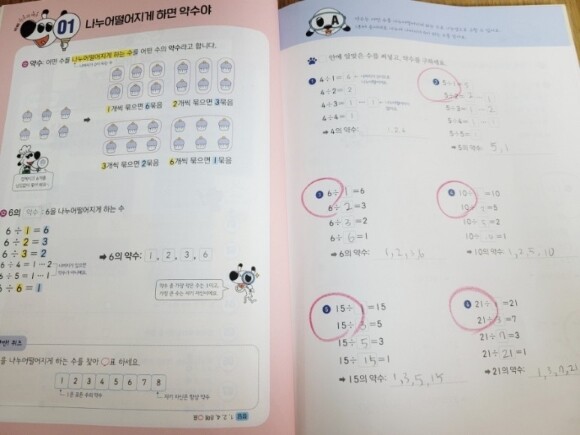 01 나누어떨어지게 하면 약수야
약수: 어떤 수를 나누어떨어지게 하는 수를 어떤 수의 약수라고 합니다.
1개씩 묶으면 6묶음
2개씩 묶으면 3묶음
3개씩 묶으면 2묶음
6개씩 묶으면 1묶음
6의 약수: 6을 나누어떨어지게 하는 수
6 ÷ 1 = 6
6 ÷ 2 = 3
6 ÷ 3 = 2
6 ÷ 4 = 1 ··· 2
6 ÷ 5 = 1 ··· 1
6 ÷ 6 = 1
➡ 6의 약수: 1, 2, 3, 6
을 나누어떨어지게 하는 수를 찾아 ○표 하세요.
1 2 3 4 5 6 7 8
A
안에 알맞은 수를 써넣고, 약수를 구하세요.
1
4÷1= 4
4÷2= 2
4÷3=
4÷4= 1
➡ 4의 약수: 1, 2, 4
2
➡ 5의 약수: 5, 1
3
6÷ 1 =6
6÷ 2 =3
6÷ 3 =2
6÷ 6 =1
➡ 6의 약수: 1, 2, 3, 6
4
10÷ =10
10÷ =5
10÷ =2
10÷ =1
➡ 10의 약수: 1, 2, 5, 10
5
15÷ 1 =15
15÷ 3 =5
15÷ 5 =3
15÷ 15 =1
➡ 15의 약수: 1, 3, 5, 15
6
21÷ 1 =21
21÷ 3 =7
21÷ 7 =3
21÷ 21 =1
➡ 21의 약수: 1, 3, 7, 21